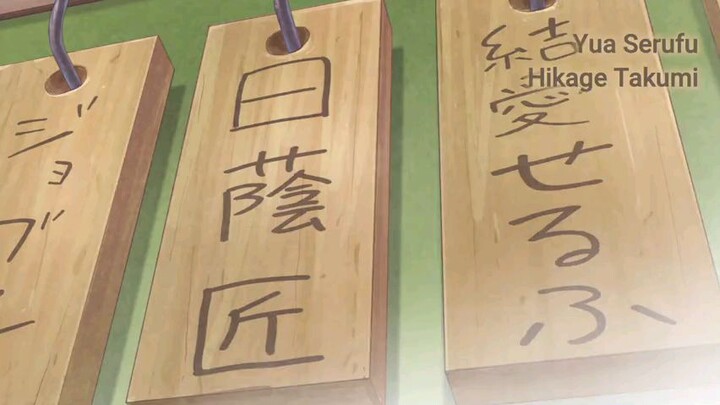 Yua Serufu
Hikage Takumi
結愛せるふ
日蔭匠
ジョブ